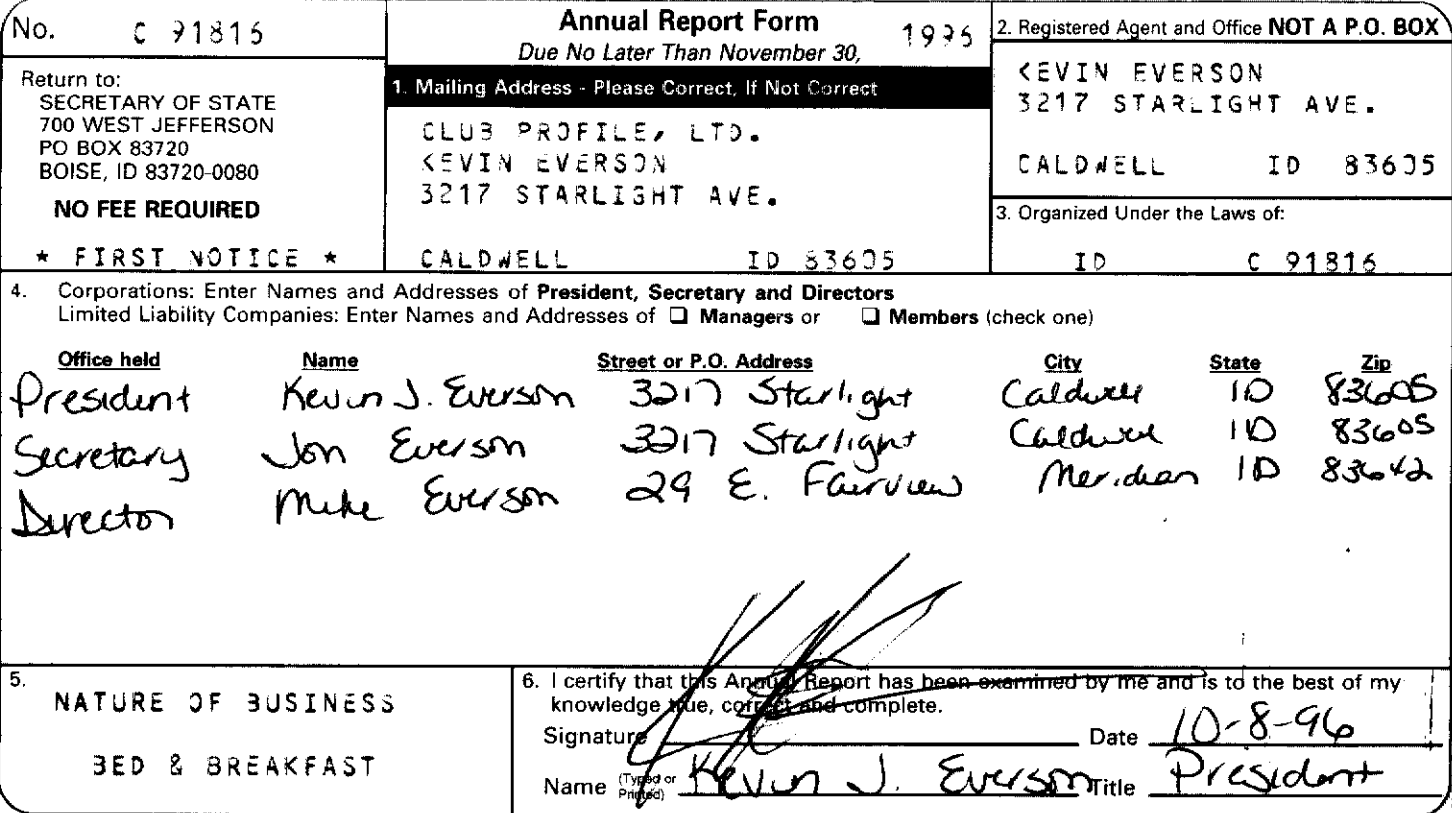 No. C 91816
Annual Report Form 1996
Due No Later Than November 30,
Return to:
SECRETARY OF STATE
700 WEST JEFFERSON
PO BOX 83720
BOISE, ID 83720-0080
NO FEE REQUIRED
* FIRST NOTICE *
1. Mailing Address - Please Correct, If Not Correct
CLUB PROFILE, LTD.
KEVIN EVERSON
3217 STARLIGHT AVE.
CALDWELL ID 83605
2. Registered Agent and Office NOT A P.O. BOX
KEVIN EVERSON
3217 STARLIGHT AVE.
CALDWELL ID 83605
3. Organized Under the Laws of:
ID C 91816
4. Corporations: Enter Names and Addresses of President, Secretary and Directors
Limited Liability Companies: Enter Names and Addresses of ❑ Managers or ❑ Members (check one)
Office held Name Street or P.O. Address City State Zip
President Kevin J. Everson 3217 Starlight Caldwell ID 83605
Secretary Jon Everson 3217 Starlight Caldwell ID 83605
Director Mike Everson 29 E. Fairview Meridian ID 83642
5.
NATURE OF BUSINESS
BED & BREAKFAST
6. I certify that this Annual Report has been examined by me and is to the best of my
knowledge true, correct and complete.
Signature Date 10-8-96
Name (Typed or Printed) Kevin J. Everson Title President